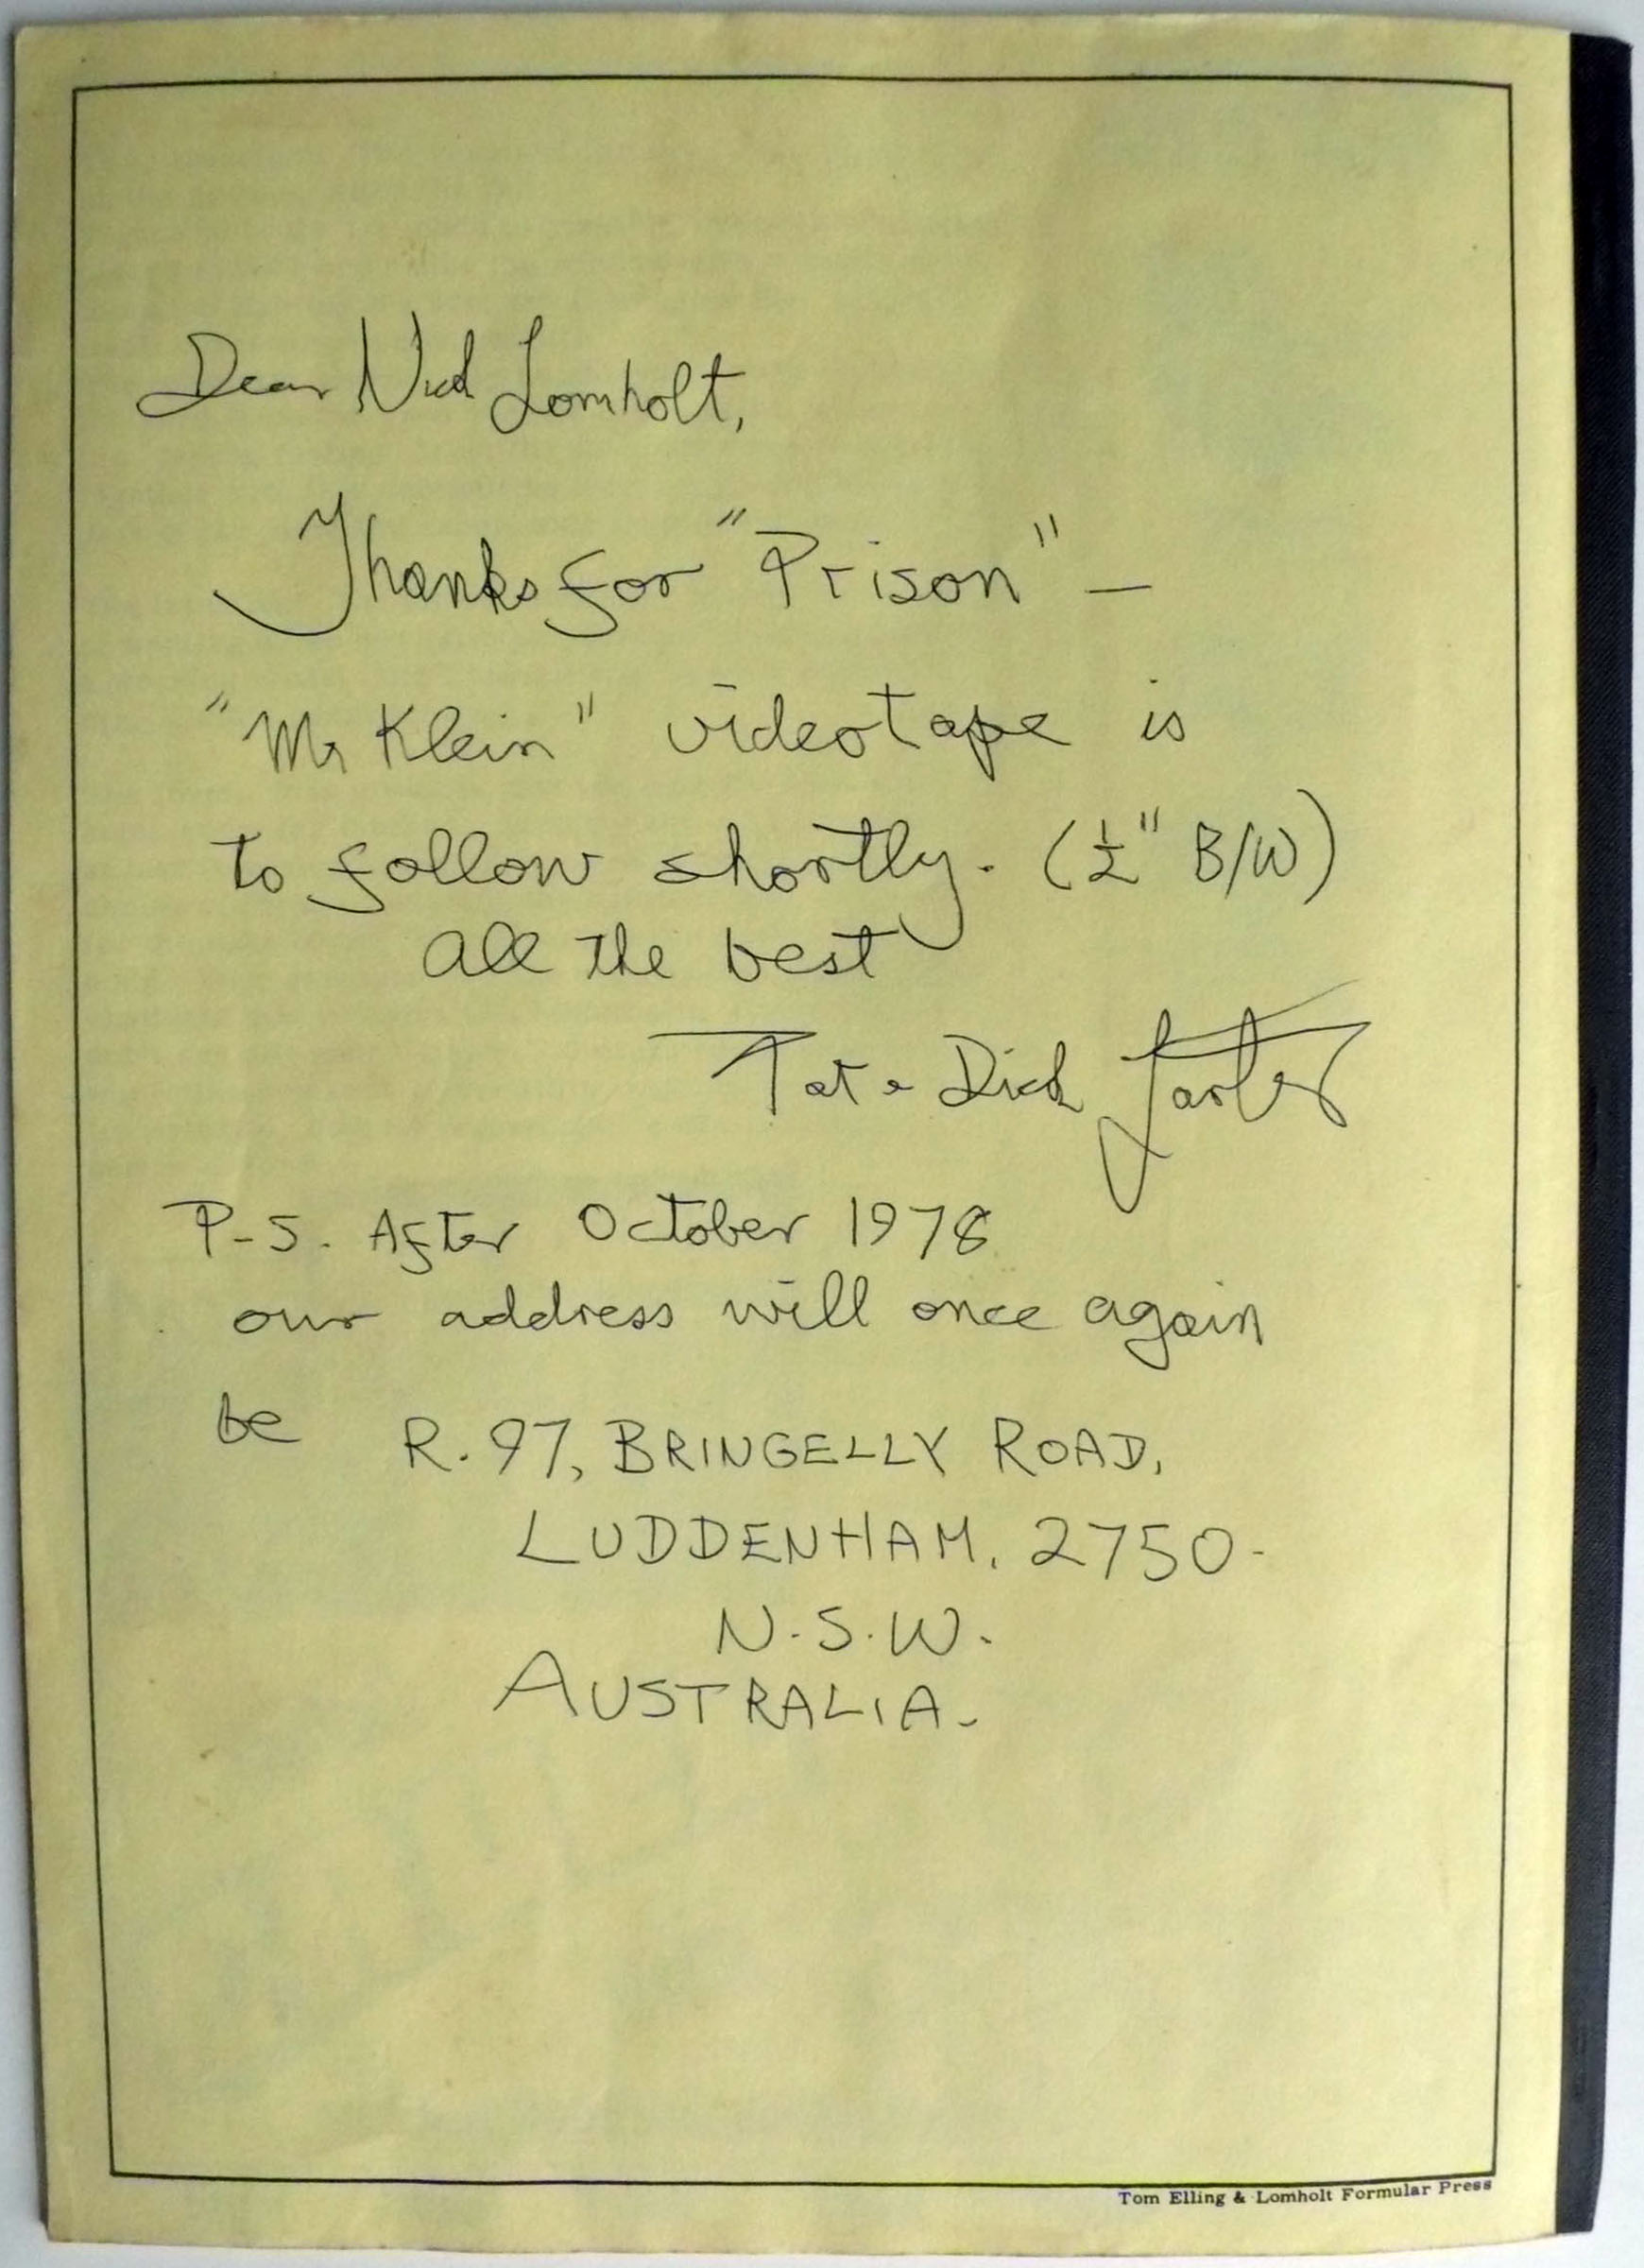 Dear Lomholt,
Thanks for "Prison" –
"Mr Klein" videotape is
to follow shortly. (½" B/W)
all the best
Pat & Dick Larter
P-S. After October 1978
our address will once again
be R. 97, BRINGELLY ROAD,
LUDDENHAM, 2750-
N.S.W.
AUSTRALIA-
Tom Elling & Lomholt Formular Press